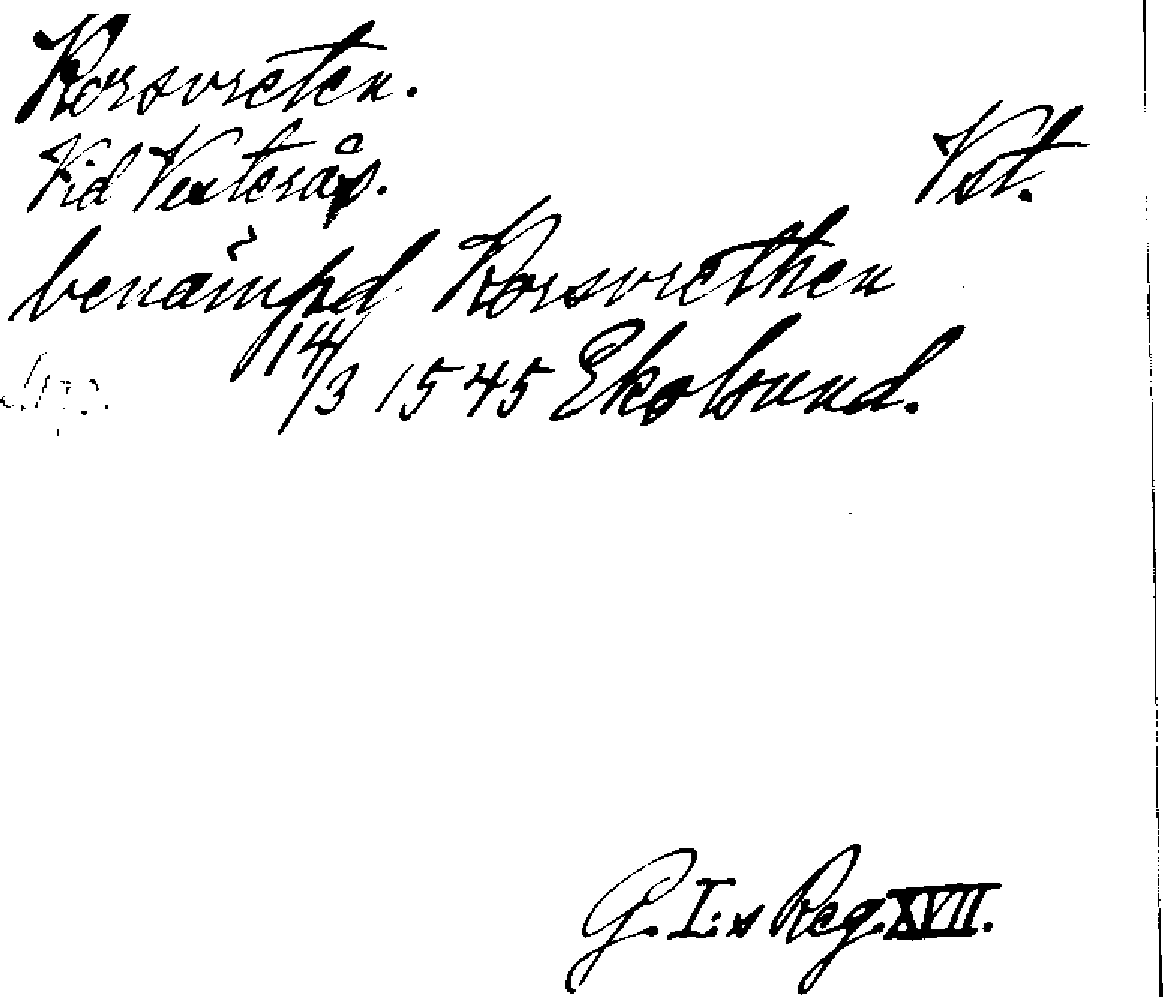 Korsvreten.
Vid Vesterås.
Vst.
benämpd Korsvrethen
14/3 1545 Ekolsund.
G. I:s Reg. XVII.